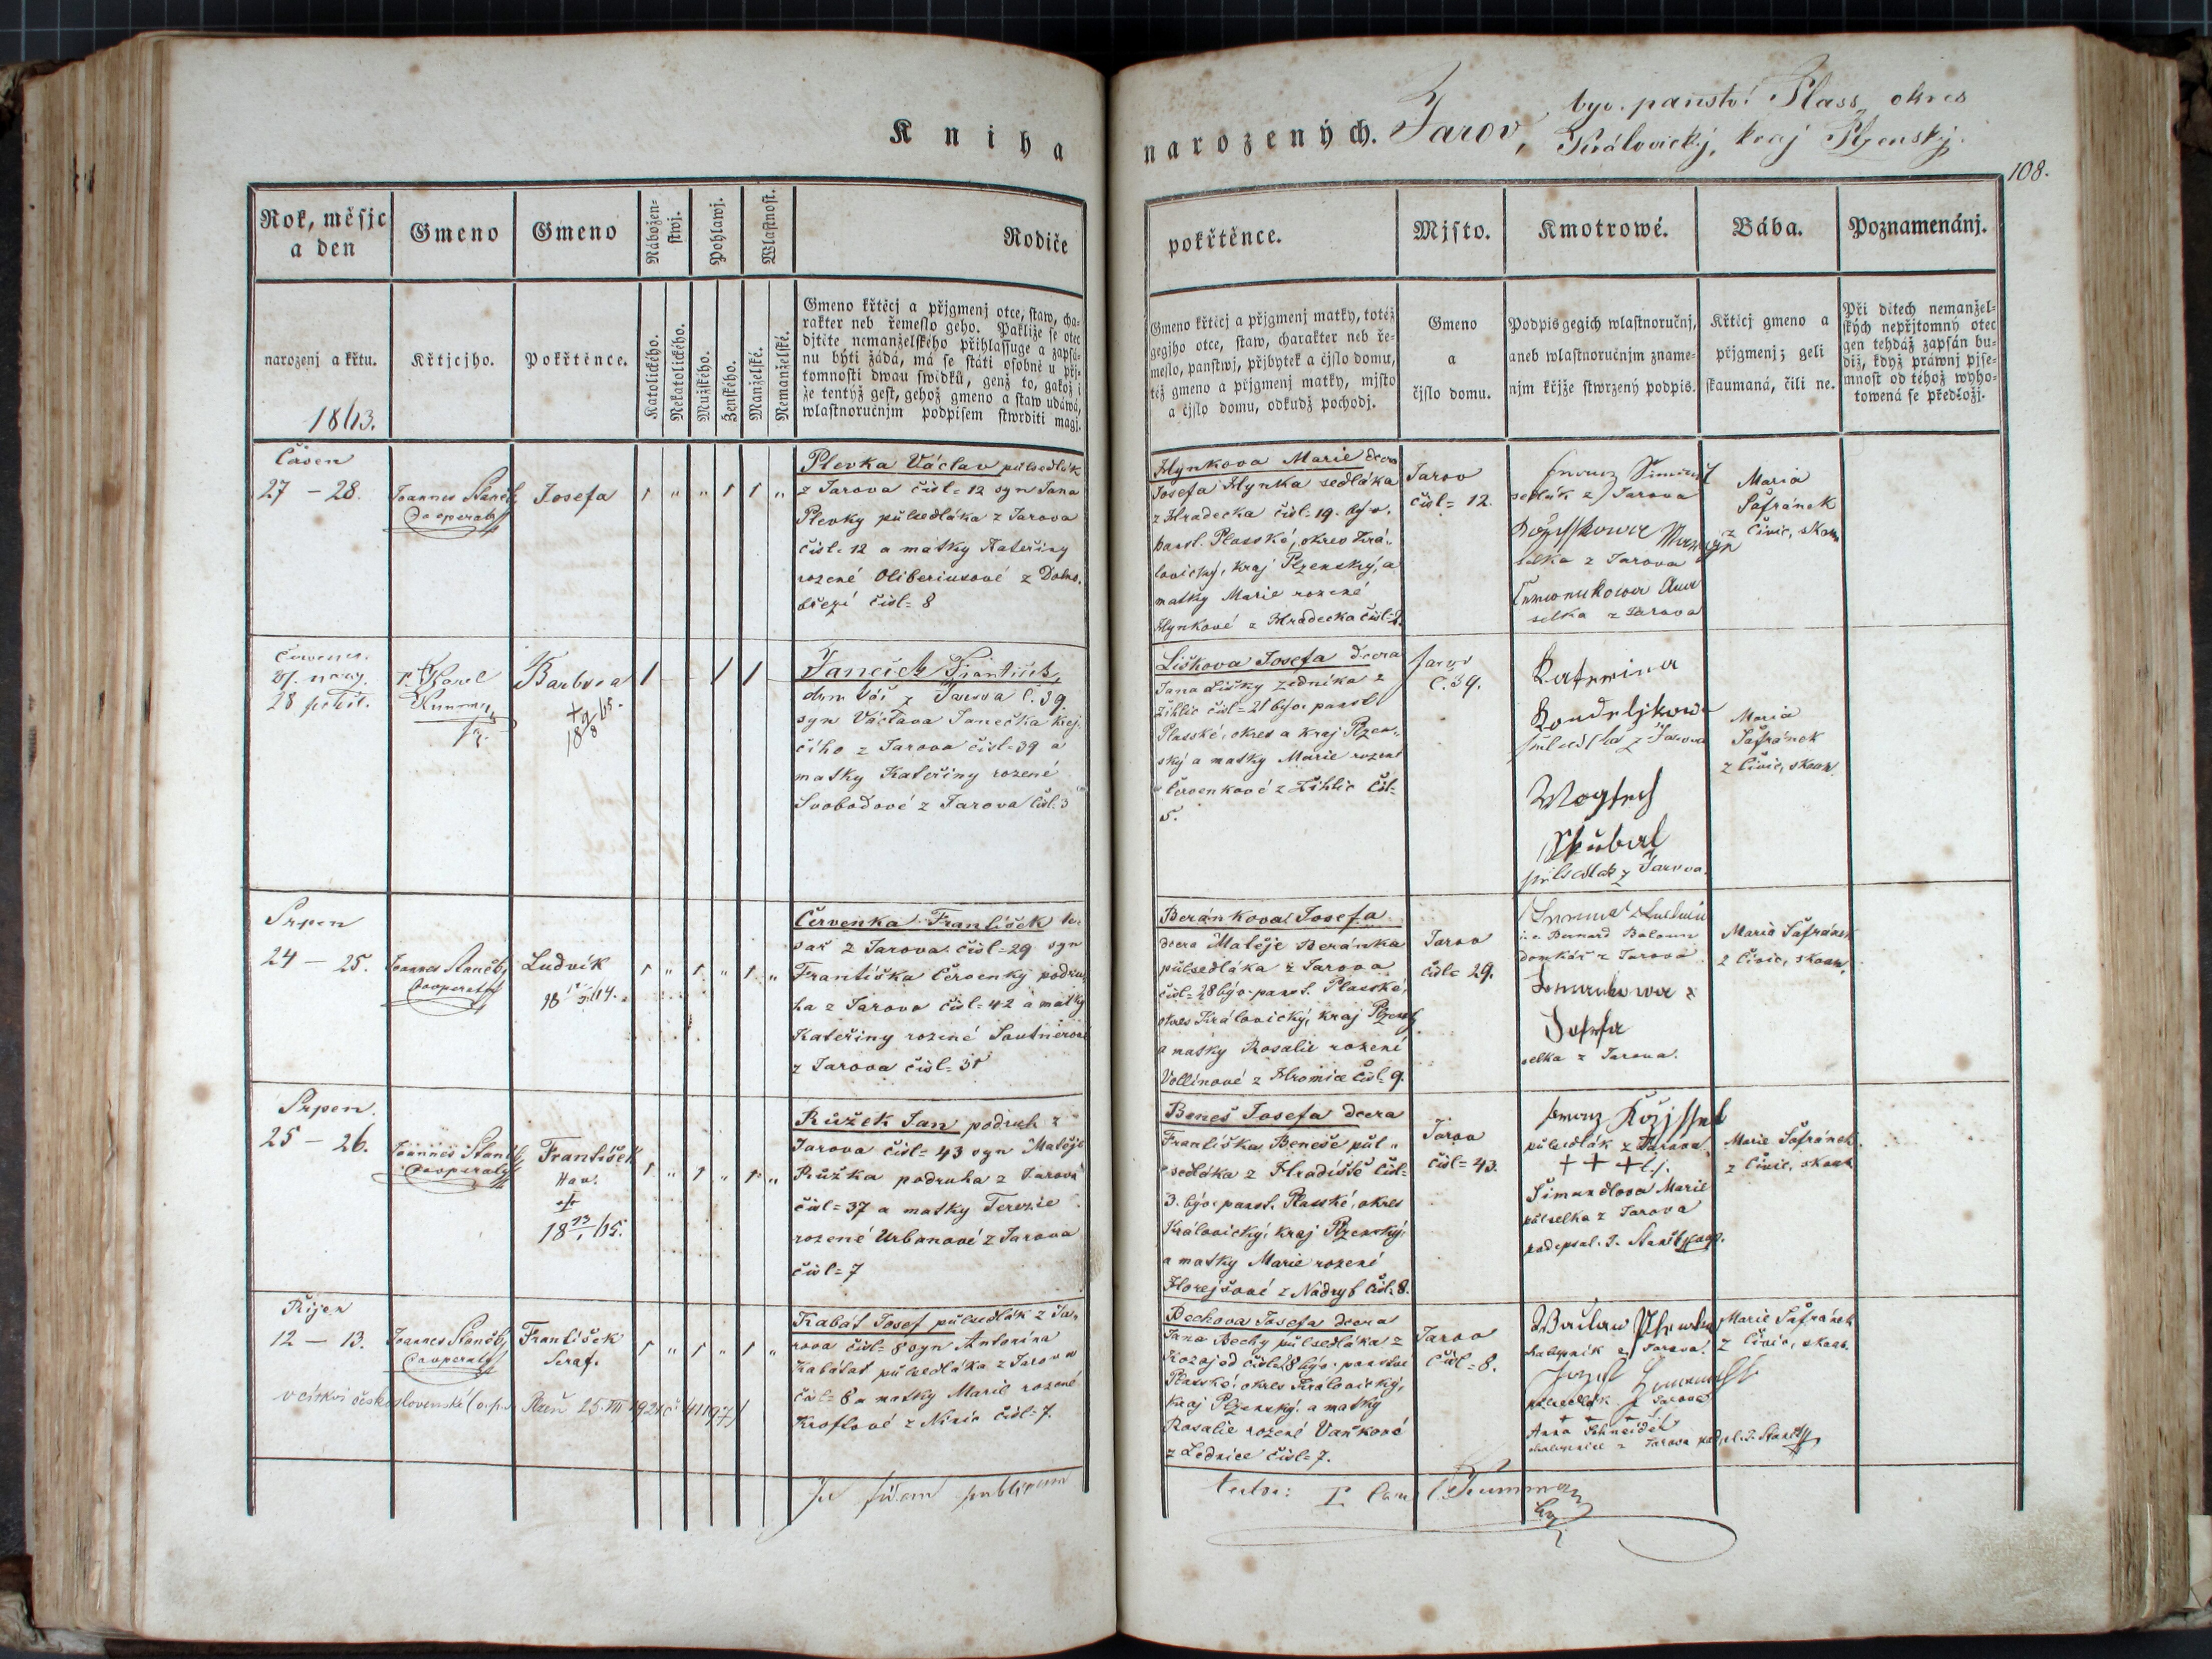 Kniha
narozených. Jarov, býv. panství Plass, okres
Královický, kraj Plzenský.
108.
Rok, měsjc
a den
Gmeno
Gmeno
Nábožen-
stwj.
Pohlawj.
Wlastnost.
Rodiče
pokřtěnce.
Mjsto.
Kmotrowé.
Bába.
Poznamenánj.
narozenj a křtu.
1843.
Křtjcjho.
Pokřtěnce.
Katolického.
Nekatolického.
Mužského.
Ženského.
Manželské.
Nemanželské.
Gmeno křtěcj a přjgmenj otce, staw, cha-
rakter neb řemeslo geho. Pakliže se otec
djtěte nemanželského přihlassuge a zapsá-
nu býti žádá, má se státi osobně u přj-
tomnosti dwau swědků, genž to, gakož i
že tentýž gest, gehož gmeno a staw udáwá,
wlastnoručnjm podpisem stwrditi magj.
Gmeno křtěcj a přjgmenj matky, totéž
gegjho otce, staw, charakter neb ře-
meslo, panstwj, přjbytek a čjslo domu,
též gmeno a přjgmenj matky, mjsto
a čjslo domu, odkudž pochodj.
Gmeno
a
čjslo domu.
Podpis gegich wlastnoručnj,
aneb wlastnoručnjm zname-
njm křjže stwrzený podpis.
Křtěcj gmeno a
přjgmenj; geli
skaumaná, čili ne.
Při dětech nemanžel-
ských nepřjtomný otec
gen tehdáž zapsán bu-
diž, když práwnj pjse-
mnost od téhož wyho-
towená se předložj.
Červen
27 – 28.
Joannes Staněk
Cooperator
Josefa
1 „ „ 1 1 „
Plevka Václav půlsedlák
z Jarova čisl= 12 syn Jana
Plevky půlsedláka z Jarova
čisl= 12 a matky Kateřiny
rozené Oliberiusové z Dobro-
březí čisl= 8
Hynkova Marie dcera
Josefa Hynka sedláka
z Hradecka čisl= 19. býv.
panst. Plasské, okres Krá-
lovický, kraj Plzenský, a
matky Marie rozené
Hynkové z Hradecka čisl=2.
Jarov
čisl= 12.
sedlák z Jarova
selka z Jarova
selka z Jarova
Maria
Šafránek
z Čivic, skoum
Červenec
27. naroz.
28 pokřt.
P. Karel
Kumman
Barbora
+
18 9/8 45.
1 1 1
Janeček František
z Jarova č. 39
syn Václava Janečka krej-
čího z Jarova čisl= 39 a
matky Kateřiny rozené
Svobodové z Jarova čisl. 3
Liškova Josefa dcera
Jana Lišky zedníka z
Žihlic čisl= 21 býv. panst
Plasské, okres a kraj Plzen-
ský a matky Marie rozené
Červenkové z Žihlic čisl=
5.
Jarov
č. 39.
Katerina
půlsedlka z Jarova
Wogtech
Skúbal
půlsedlák z Jarova
Maria
Šafránek
z Čivic, skoum.
Srpen
24 – 25.
Joannes Staněk
Cooperator
Ludvík
1 „ 1 „ 1 „
Červenka František te-
sař z Jarova čisl= 29 syn
Františka Červenky podru-
ha z Jarova čisl= 42 a matky
Kateřiny rozené Sautnerové
z Jarova čisl= 31
Beránkova Josefa
dcera Matěje Beránka
půlsedláka z Jarova
čisl= 28 býv. panst. Plasské,
okres Královický, kraj Plzensk
a matky Rosalie rozené
Vollinové z Hromice čisl= 9.
Jarov
čisl= 29.
Bernard
domkář z Jarova
Josefa
selka z Jarova.
Maria Šafránek
z Čivic, skoum.
Srpen.
25 – 26.
Joannes Staněk
Cooperator
František
Hav.
+
18 13/1 45.
1 „ 1 „ 1 „
Růžek Jan podruh z
Jarova čisl= 43 syn Matěje
Růžka podruha z Jarova
čisl= 37 a matky Terezie
rozené Urbanové z Jarova
čisl= 7
Beneš Josefa dcera
Františka Beneše půl-
sedláka z Hradiště čisl=
3. býv. panst. Plasské, okres
Královický, kraj Plzenský,
a matky Marie rozené
Horejšové z Nadryb čisl. 8.
Jarov
čisl= 43.
půlsedlák z Jarova
+ + +
Šimandlova Marie
půlselka z Jarova
podepsal J. Staněk
Marie Šafránek
z Čivic, skoum
Říjen
12 – 13.
Joannes Staněk
Cooperator
František
Seraf.
1 „ 1 „ 1 „
Kabát Josef půlsedlák z Ja-
rova čisl= 8 syn Antonína
Kabáta půlsedláka z Jarova
čisl= 8 a matky Marie rozené
Kroftové z Nizic čisl= 7.
Bechova Josefa dcera
Jana Bechy půlsedláka z
Kozojed čisl= 8 býv. panství
Plasské, okres Královický,
kraj Plzenský a matky
Rosalie rozené Vaňkové
z Lednice čisl= 7.
Jarov
čisl= 8.
Wáclaw Plewka
chalupník z Jarova
Josef
půlsedlák z Jarova
+ + +
Anna Schneider
chalupnice z Jarova podps. J. Staněk
Marie Šafránek
z Čivic, skoum.
v církvi československé Plzeň 25.VIII 1921 č 41197
In fidem publicam
testor: P. Karel Kumman